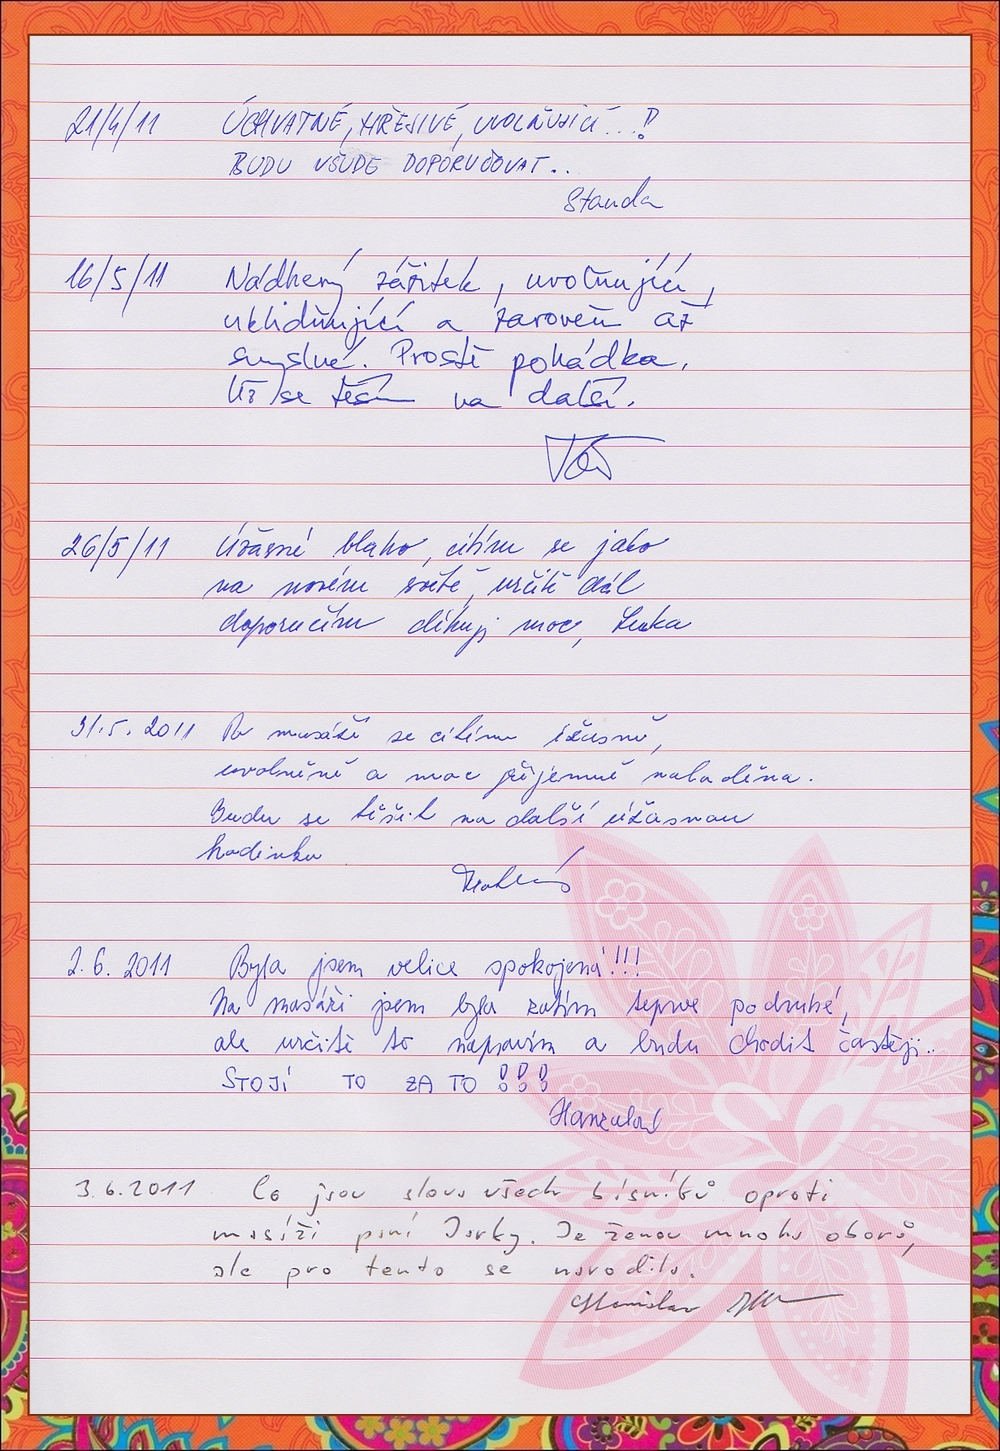 21/4/11 ÚCHVATNÉ, HŘEJIVÉ, UVOLŇUJÍCÍ...!
BUDU VŠUDE DOPORUČOVAT..
Standa
16/5/11 Nádherný zážitek, uvolňující,
uklidňující a zároveň až
smyslné. Prostě pohádka.
Už se těším na další.
26/5/11 Úžasné blaho, cítím se jako
na novém světě, určitě dál
doporučím děkuji moc, Lenka
31.5. 2011 Po masáži se cítím úžasně,
uvolněně a moc příjemně naladěna.
Budu se těšit na další úžasnou
hodinku
2.6. 2011 Byla jsem velice spokojená!!!
Na masáži jsem byla zatím teprve podruhé,
ale určitě to napravím a budu chodit častěji..
STOJÍ TO ZA TO !!!
3.6.2011 Co jsou slova všech básníků oproti
masáži paní Jarky. Je ženou mnoha oborů,
ale pro tento se narodila.
Stanislav